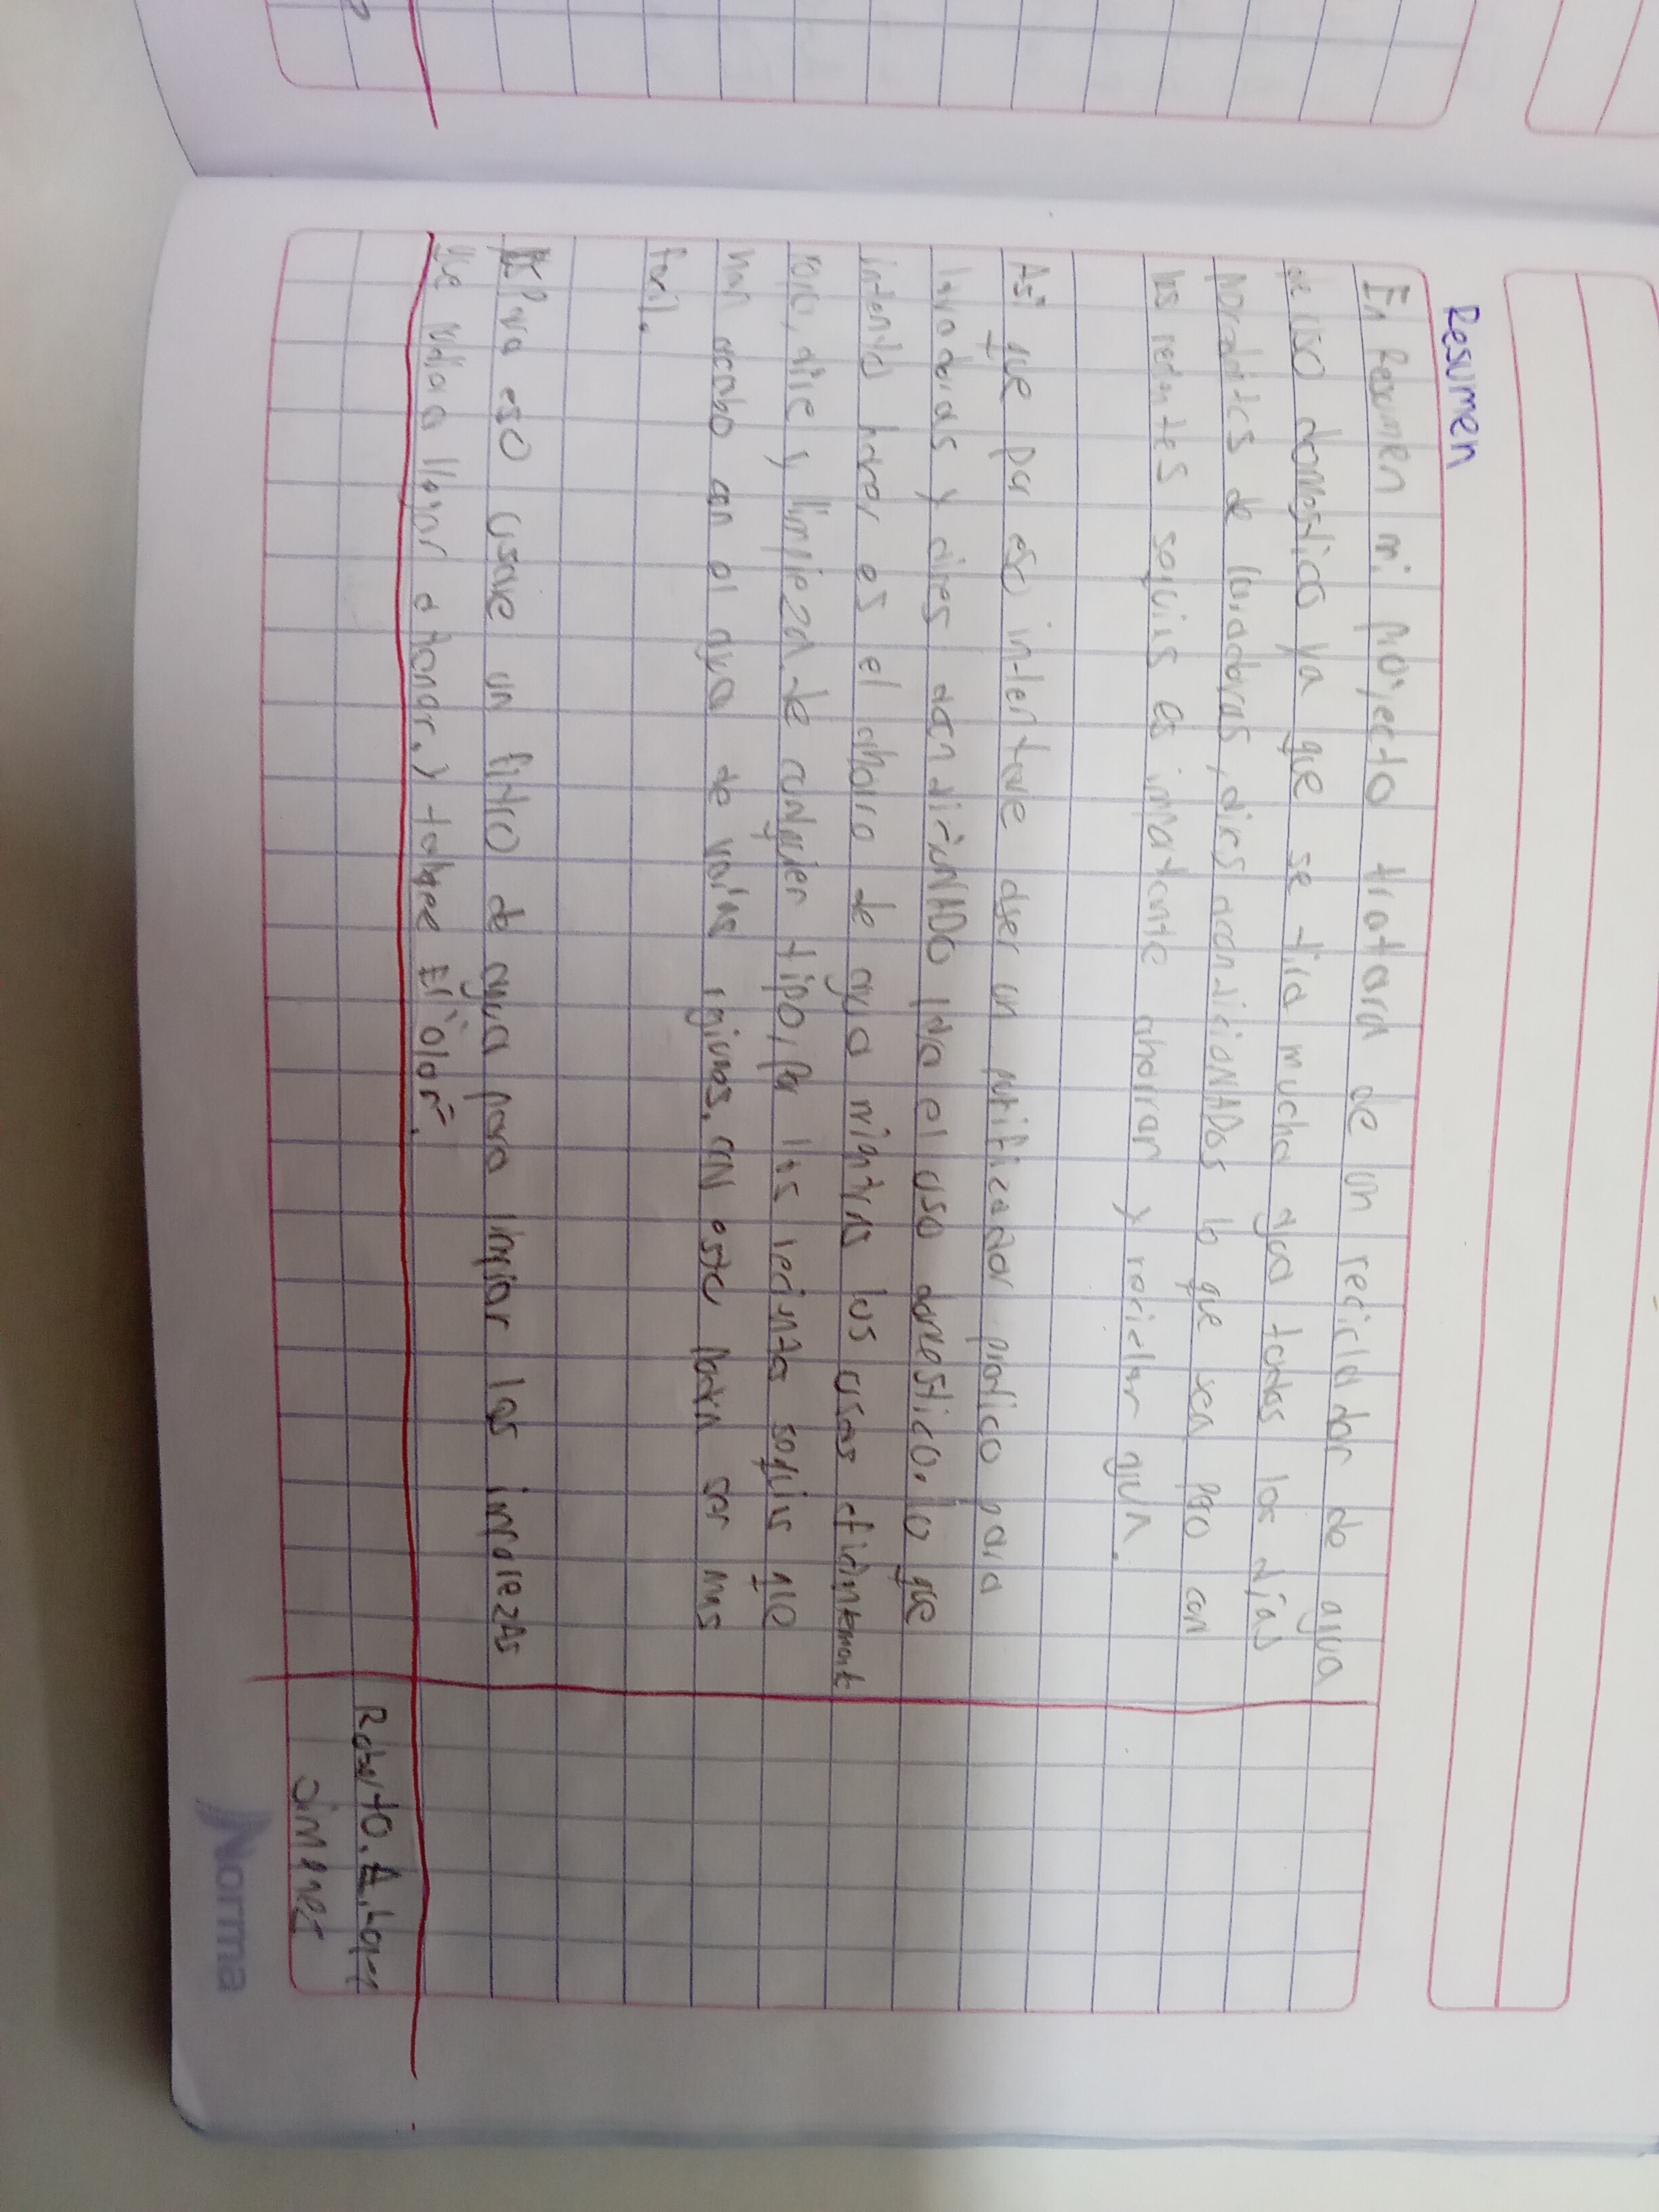 Resumen
En Resumen mi proyecto tratara de un reciclador de agua
de uso domestico ya que se tira mucha agua todos los dias
de lavadoras, aires acondicioNADos lo que sea pero con
las resientes sequias es importante ahorrar y reciclar agua.
Asi que por eso intentare aser un purificador practico para
lavadoras y aires acondicioNADO para el uso domestico. lo que
intento hacer es el ahorro de agua mientras los usas eficientement
ropa, aire y limpieza de cualquier tipo, Por las recientes sequias que
han acabo con el agua de varias regiones, CON esto podra ser mas
facil.
Para eso usare un filtro de agua para limpiar las imporezas
que pudiera llegar a tener, y tambee El "olor".
Roberto. A. Lopez
JiMENEZ
Norma